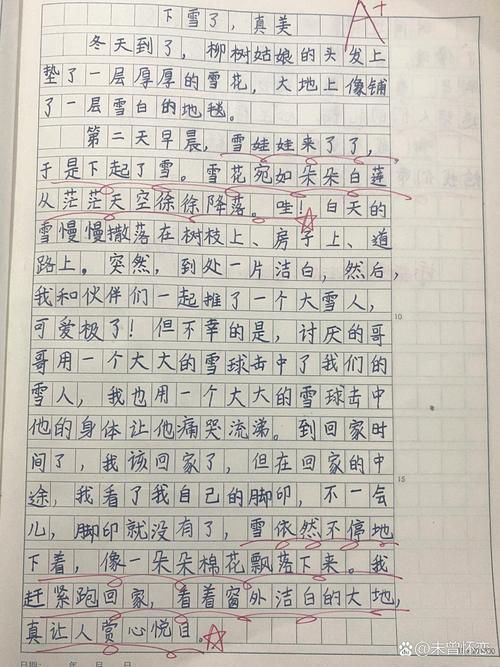 下雪了，真美
A+
冬天到了，柳树姑娘的头发上
垫了一层厚厚的雪花，大地上像铺
了一层雪白的地毯。
第二天早晨，雪娃娃来了了，
于是下起了雪。雪花宛如朵朵白莲
从茫茫天空徐徐降落。哇！白天的
雪慢慢撒落在树枝上、房子上、道
路上。突然，到处一片洁白，然后，
我和伙伴们一起推了一个大雪人，
可爱极了！但不幸的是，讨厌的哥
哥用一个大大的雪球击中了我们的
雪人，我也用一个大大的雪球击中
他的身体让他痛哭流涕。到回家时
间了，我该回家了，但在回家的中
途，我看了我自己的脚印，不一会
儿，脚印就没有了，雪依然不停地
下着，像一朵朵棉花飘落下来。我
赶紧跑回家，看着窗外洁白的大地，
真让人赏心悦目。
10
15
日期： 年 月 日
@未曾怀恋